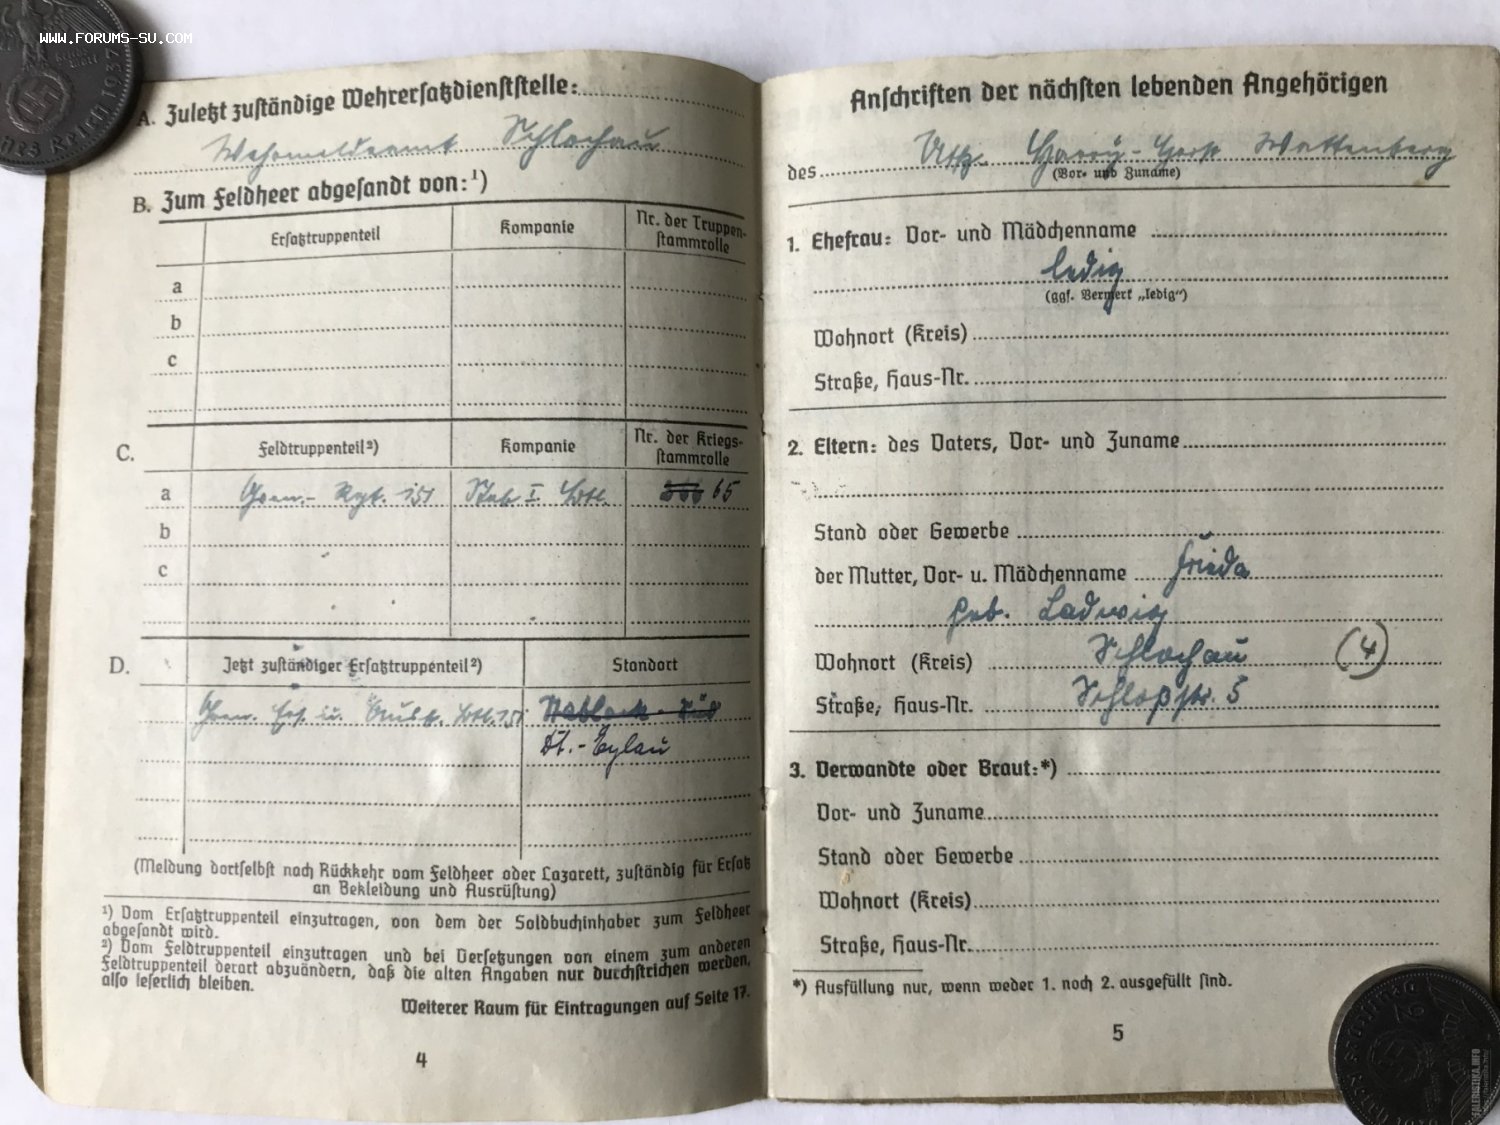 WWW.FORUMS-SU.COM
Deutsches Reich 1937
A. Zuletzt zuständige Wehrersatzdienststelle:
Wehrmeldeamt Schlochau
B. Zum Feldheer abgesandt von: ¹)
Ersatztruppenteil Kompanie Nr. der Truppen-
stammrolle
a
b
c
C. Feldtruppenteil ²) Kompanie Nr. der Kriegs-
stammrolle
a Gren.- Rgt. 151 Stab I. Btl. 65
b
c
D. Jetzt zuständiger Ersatztruppenteil ²) Standort
Gren. Ers. u. Ausb. Btl. 151
Dt.-Eylau
(Meldung dortselbst nach Rückkehr vom Feldheer oder Lazarett, zuständig für Ersatz
an Bekleidung und Ausrüstung)
¹) Vom Ersatztruppenteil einzutragen, von dem der Soldbuchinhaber zum Feldheer
abgesandt wird.
²) Vom Feldtruppenteil einzutragen und bei Versetzungen von einem zum anderen
Feldtruppenteil derart abzuändern, daß die alten Angaben nur durchstrichen werden,
also leserlich bleiben.
Weiterer Raum für Eintragungen auf Seite 17.
4
Anschriften der nächsten lebenden Angehörigen
des Uffz. Harry-Horst Wattenberg
(Vor- und Zuname)
1. Ehefrau: Vor- und Mädchenname
ledig
(ggf. Vermerk „ledig")
Wohnort (Kreis)
Straße, Haus-Nr.
2. Eltern: des Vaters, Vor- und Zuname
Stand oder Gewerbe
der Mutter, Vor- u. Mädchenname Frieda
geb. Ladwig
Wohnort (Kreis) Schlochau (4)
Straße, Haus-Nr. Schloßstr. 5
3. Verwandte oder Braut: *)
Vor- und Zuname
Stand oder Gewerbe
Wohnort (Kreis)
Straße, Haus-Nr.
*) Ausfüllung nur, wenn weder 1. noch 2. ausgefüllt sind.
5
FALERISTIKA.INFO